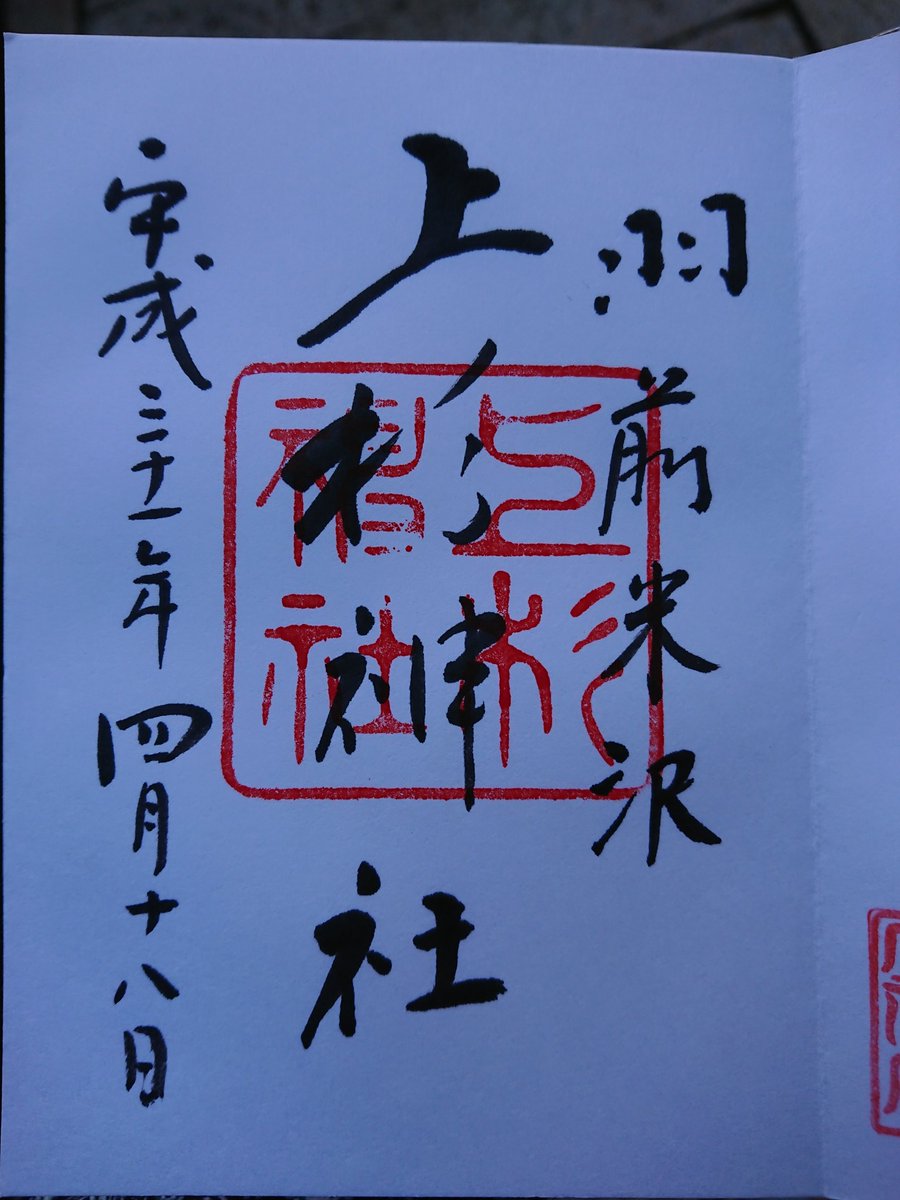 羽前米沢
上杉神社
平成三十一年四月十八日
上杉
神社